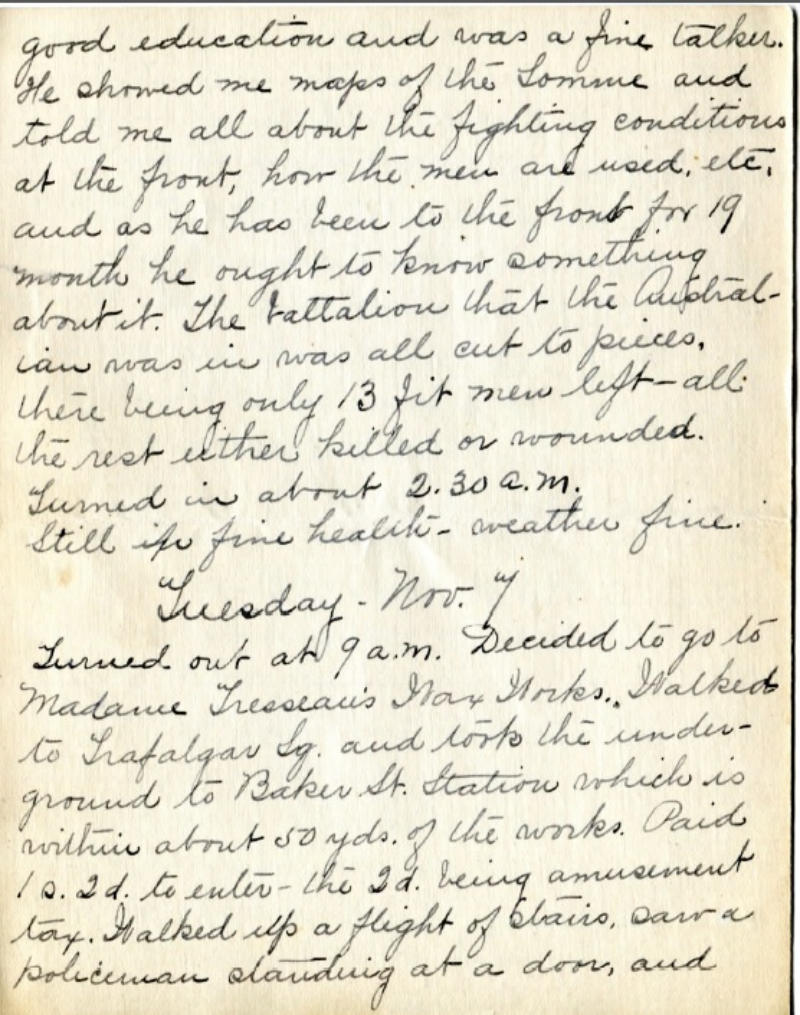 good education and was a fine talker.
He showed me maps of the Somme and
told me all about the fighting conditions
at the front, how the men are used, etc,
and as he has been to the front for 19
month he ought to know something
about it. The battalion that the Austral-
ian was in was all cut to pieces,
there being only 13 fit men left - all
the rest either killed or wounded.
Turned in about 2.30 a.m.
Still in fine health - weather fine.
Tuesday - Nov. 7
Turned out at 9 a.m. Decided to go to
Madame Tresseau's Wax Works. Walked
to Trafalgar Sq. and took the under-
ground to Baker St. Station which is
within about 50 yds. of the works. Paid
1 s. 2 d. to enter - the 2 d. being amusement
tax. Walked up a flight of stairs, saw a
policeman standing at a door, and